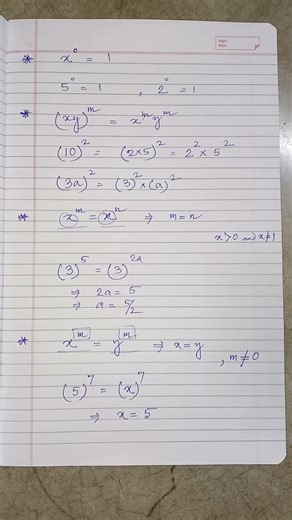 Page:
Date:
* x⁰ = 1
5⁰ = 1 , 2⁰ = 1
* (xy)ᵐ = xᵐyᵐ
(10)² = (2×5)² = 2² × 5²
(3a)² = (3)²×(a)²
* xᵐ = xⁿ ⇒ m=n
x>0 and x≠1
(3)⁵ = (3)²ᵃ
⇒ 2a = 5
⇒ a = 5/2
* xᵐ = yᵐ ⇒ x=y
, m≠0
(5)⁷ = (x)⁷
⇒ x = 5